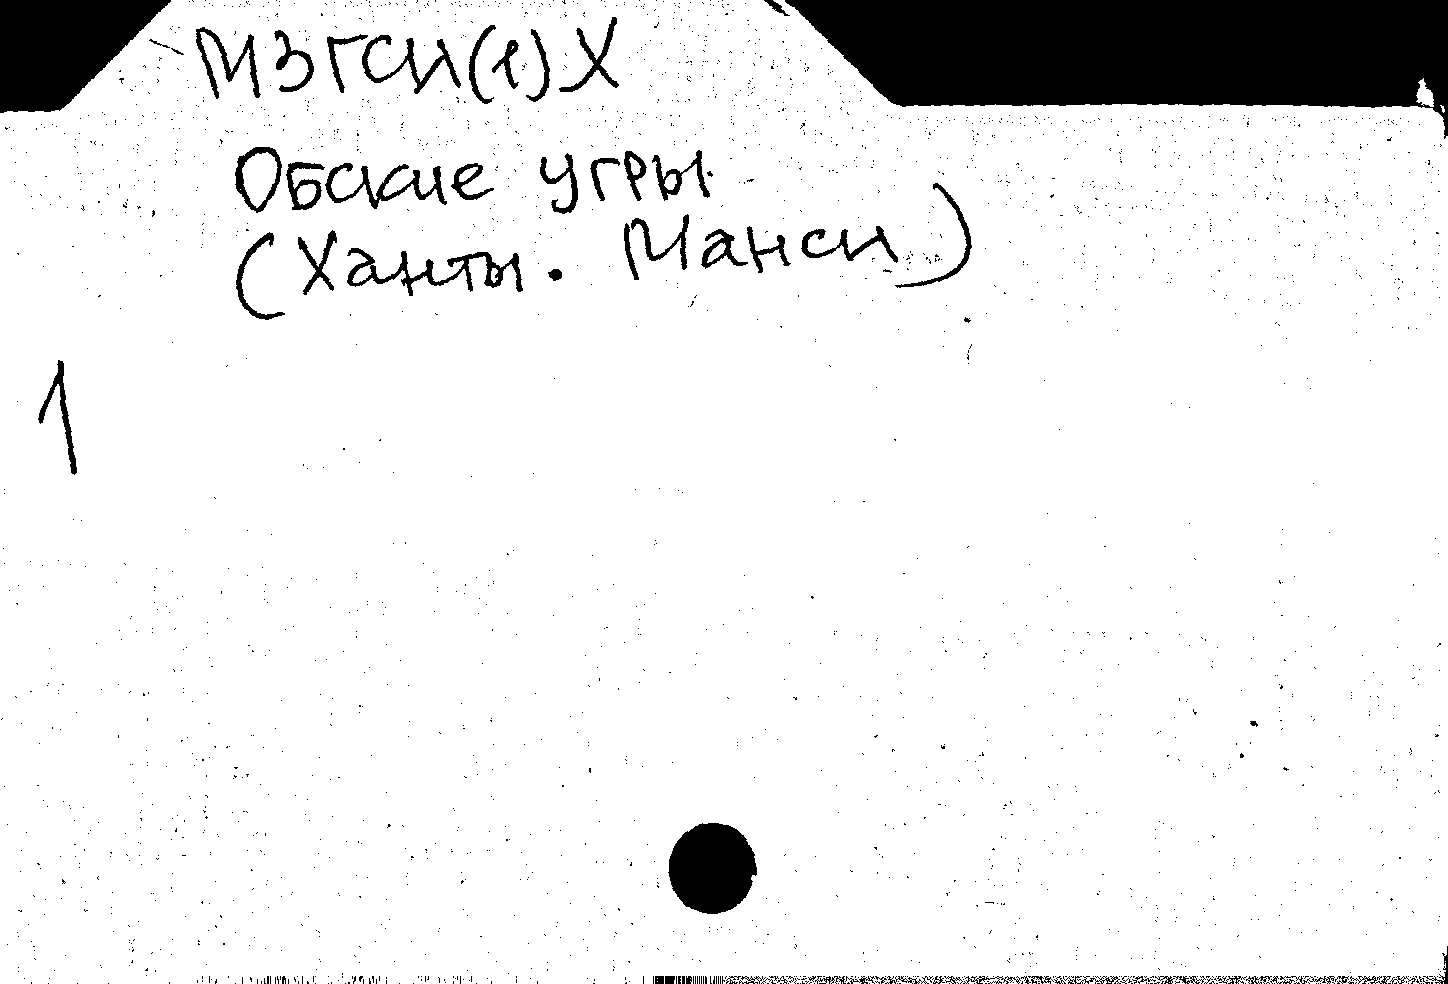 МЗГСИ(1)Х
Обские угры
(Ханты. Манси)
1